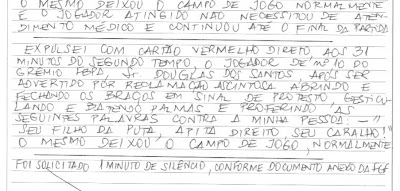 O MESMO DEIXOU O CAMPO DE JOGO NORMALMENTE
E O JOGADOR ATINGIDO NÃO NECESSITOU DE ATEN-
DIMENTO MÉDICO E CONTINUOU ATÉ O FINAL DA PARTIDA
EXPULSEI COM CARTÃO VERMELHO DIRETO AOS 31
MINUTOS DO SEGUNDO TEMPO, O JOGADOR DE Nº 10 DO
GRÊMIO FBPA, Sr. DOUGLAS DOS SANTOS, APÓS SER
ADVERTIDO POR RECLAMAÇÃO ACINTOSA, ABRINDO E
FECHANDO OS BRAÇOS EM SINAL DE PROTESTO, GESTICU-
LANDO E BATENDO PALMAS E PROFERINDO, AS
SEGUINTES PALAVRAS CONTRA A MINHA PESSOA: - "
SEU FILHO DA PUTA, APITA DIREITO SEU CARALHO!"
O MESMO DEIXOU O CAMPO DE JOGO, NORMALMENTE
FOI SOLICITADO 1 MINUTO DE SILÊNCIO, CONFORME DOCUMENTO ANEXO DA FGF